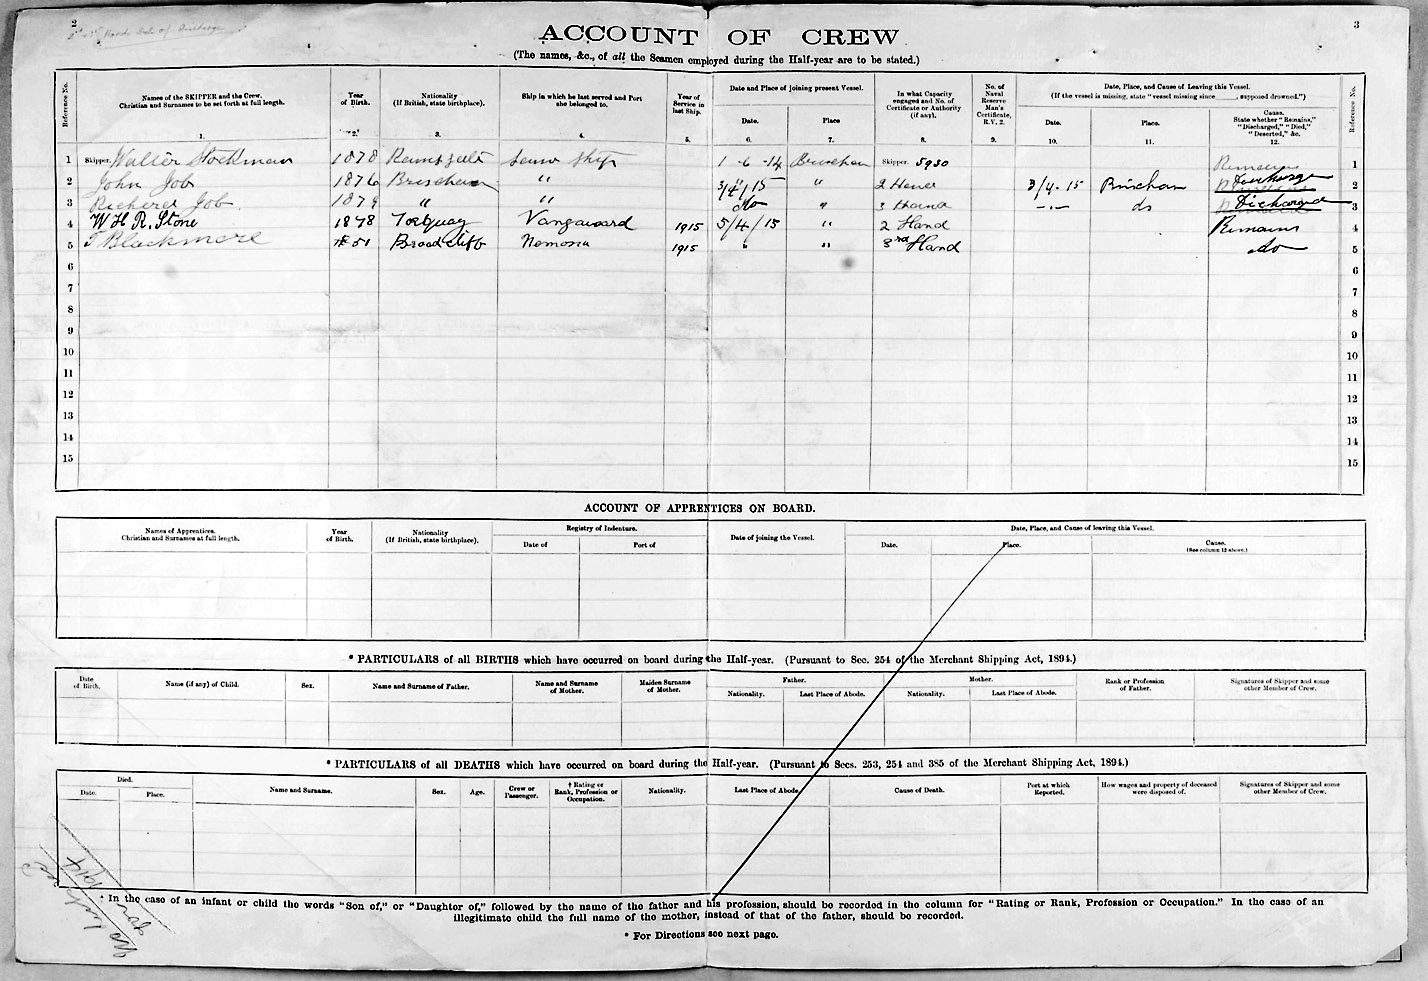 2
3
ACCOUNT OF CREW
(The names, &c., of all the Seamen employed during the Half-year are to be stated.)
Reference No.
Names of the SKIPPER and the Crew. Christian and Surnames to be set forth at full length. 1.
Year of Birth. 2.
Nationality (If British, state birthplace). 3.
Ship in which he last served and Port she belonged to. 4.
Year of Service in last Ship. 5.
Date and Place of joining present Vessel.
Date. 6.
Place 7.
In what Capacity engaged and No. of Certificate or Authority (if any). 8.
No. of Naval Reserve Man's Certificate, R.V. 2. 9.
Date, Place, and Cause of Leaving this Vessel.
(If the vessel is missing, state "vessel missing since ____, supposed drowned.")
Date. 10.
Place. 11.
Cause. State whether "Remains," "Discharged," "Died," "Deserted," &c. 12.
Reference No.
1 Skipper. Walter Stockman 1878 Ramsgate same ship 1-6-14 Brixham Skipper. 5930 Remains 1
2 John Job 1876 Brixham " 3/4/15 " 2 Hand 3/4-15 Brixham Discharge 2
3 Richard Job 1879 " " do " 3 Hand -"- do Discharged 3
4 W H R. Stone 1878 Torquay Vanguard 1915 5/4/15 " 2 Hand Remains 4
5 T Blackmore 51 Broadcliff Nemona 1915 " " 3rd Hand do 5
6 6
7 7
8 8
9 9
10 10
11 11
12 12
13 13
14 14
15 15
ACCOUNT OF APPRENTICES ON BOARD.
Names of Apprentices. Christian and Surnames at full length.
Year of Birth.
Nationality (If British, state birthplace).
Registry of Indenture.
Date of
Port of
Date of joining the Vessel.
Date, Place, and Cause of leaving this Vessel.
Date.
Place.
Cause. (See column 12 above.)
* PARTICULARS of all BIRTHS which have occurred on board during the Half-year. (Pursuant to Sec. 254 of the Merchant Shipping Act, 1894.)
Date of Birth.
Name (if any) of Child.
Sex.
Name and Surname of Father.
Name and Surname of Mother.
Maiden Surname of Mother.
Father.
Nationality.
Last Place of Abode.
Mother.
Nationality.
Last Place of Abode.
Rank or Profession of Father.
Signatures of Skipper and some other Member of Crew.
* PARTICULARS of all DEATHS which have occurred on board during the Half-year. (Pursuant to Secs. 253, 254 and 385 of the Merchant Shipping Act, 1894.)
Died.
Date.
Place.
Name and Surname.
Sex.
Age.
Crew or Passenger.
† Rating or Rank, Profession or Occupation.
Nationality.
Last Place of Abode.
Cause of Death.
Port at which Reported.
How wages and property of deceased were disposed of.
Signatures of Skipper and some other Member of Crew.
* In the case of an infant or child the words "Son of," or "Daughter of," followed by the name of the father and his profession, should be recorded in the column for "Rating or Rank, Profession or Occupation." In the case of an
illegitimate child the full name of the mother, instead of that of the father, should be recorded.
* For Directions see next page.
1914